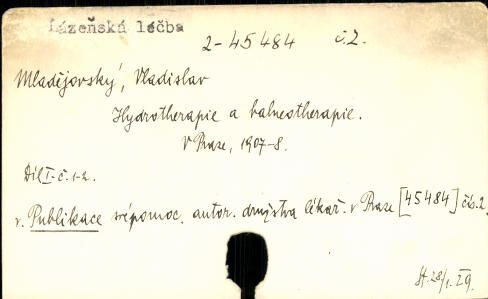 Lázeňská léčba
2-45484 č.2.
Mladějovský, Vladislav
Hydrotherapie a balneotherapie.
V Praze, 1907-8.
Díl I. č. 1-2.
v. Publikace svépomoc. autor. družstva lékař. v Praze [45484] čís. 2
St. 28/1. 29.